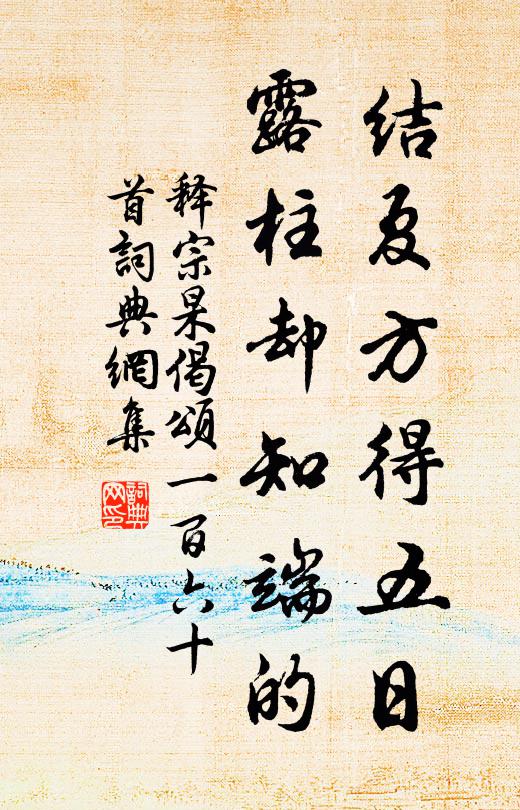 结夏方得五日
露柱却知端的
释宗杲偈颂一百六十
首詞典網集
詞典
网印